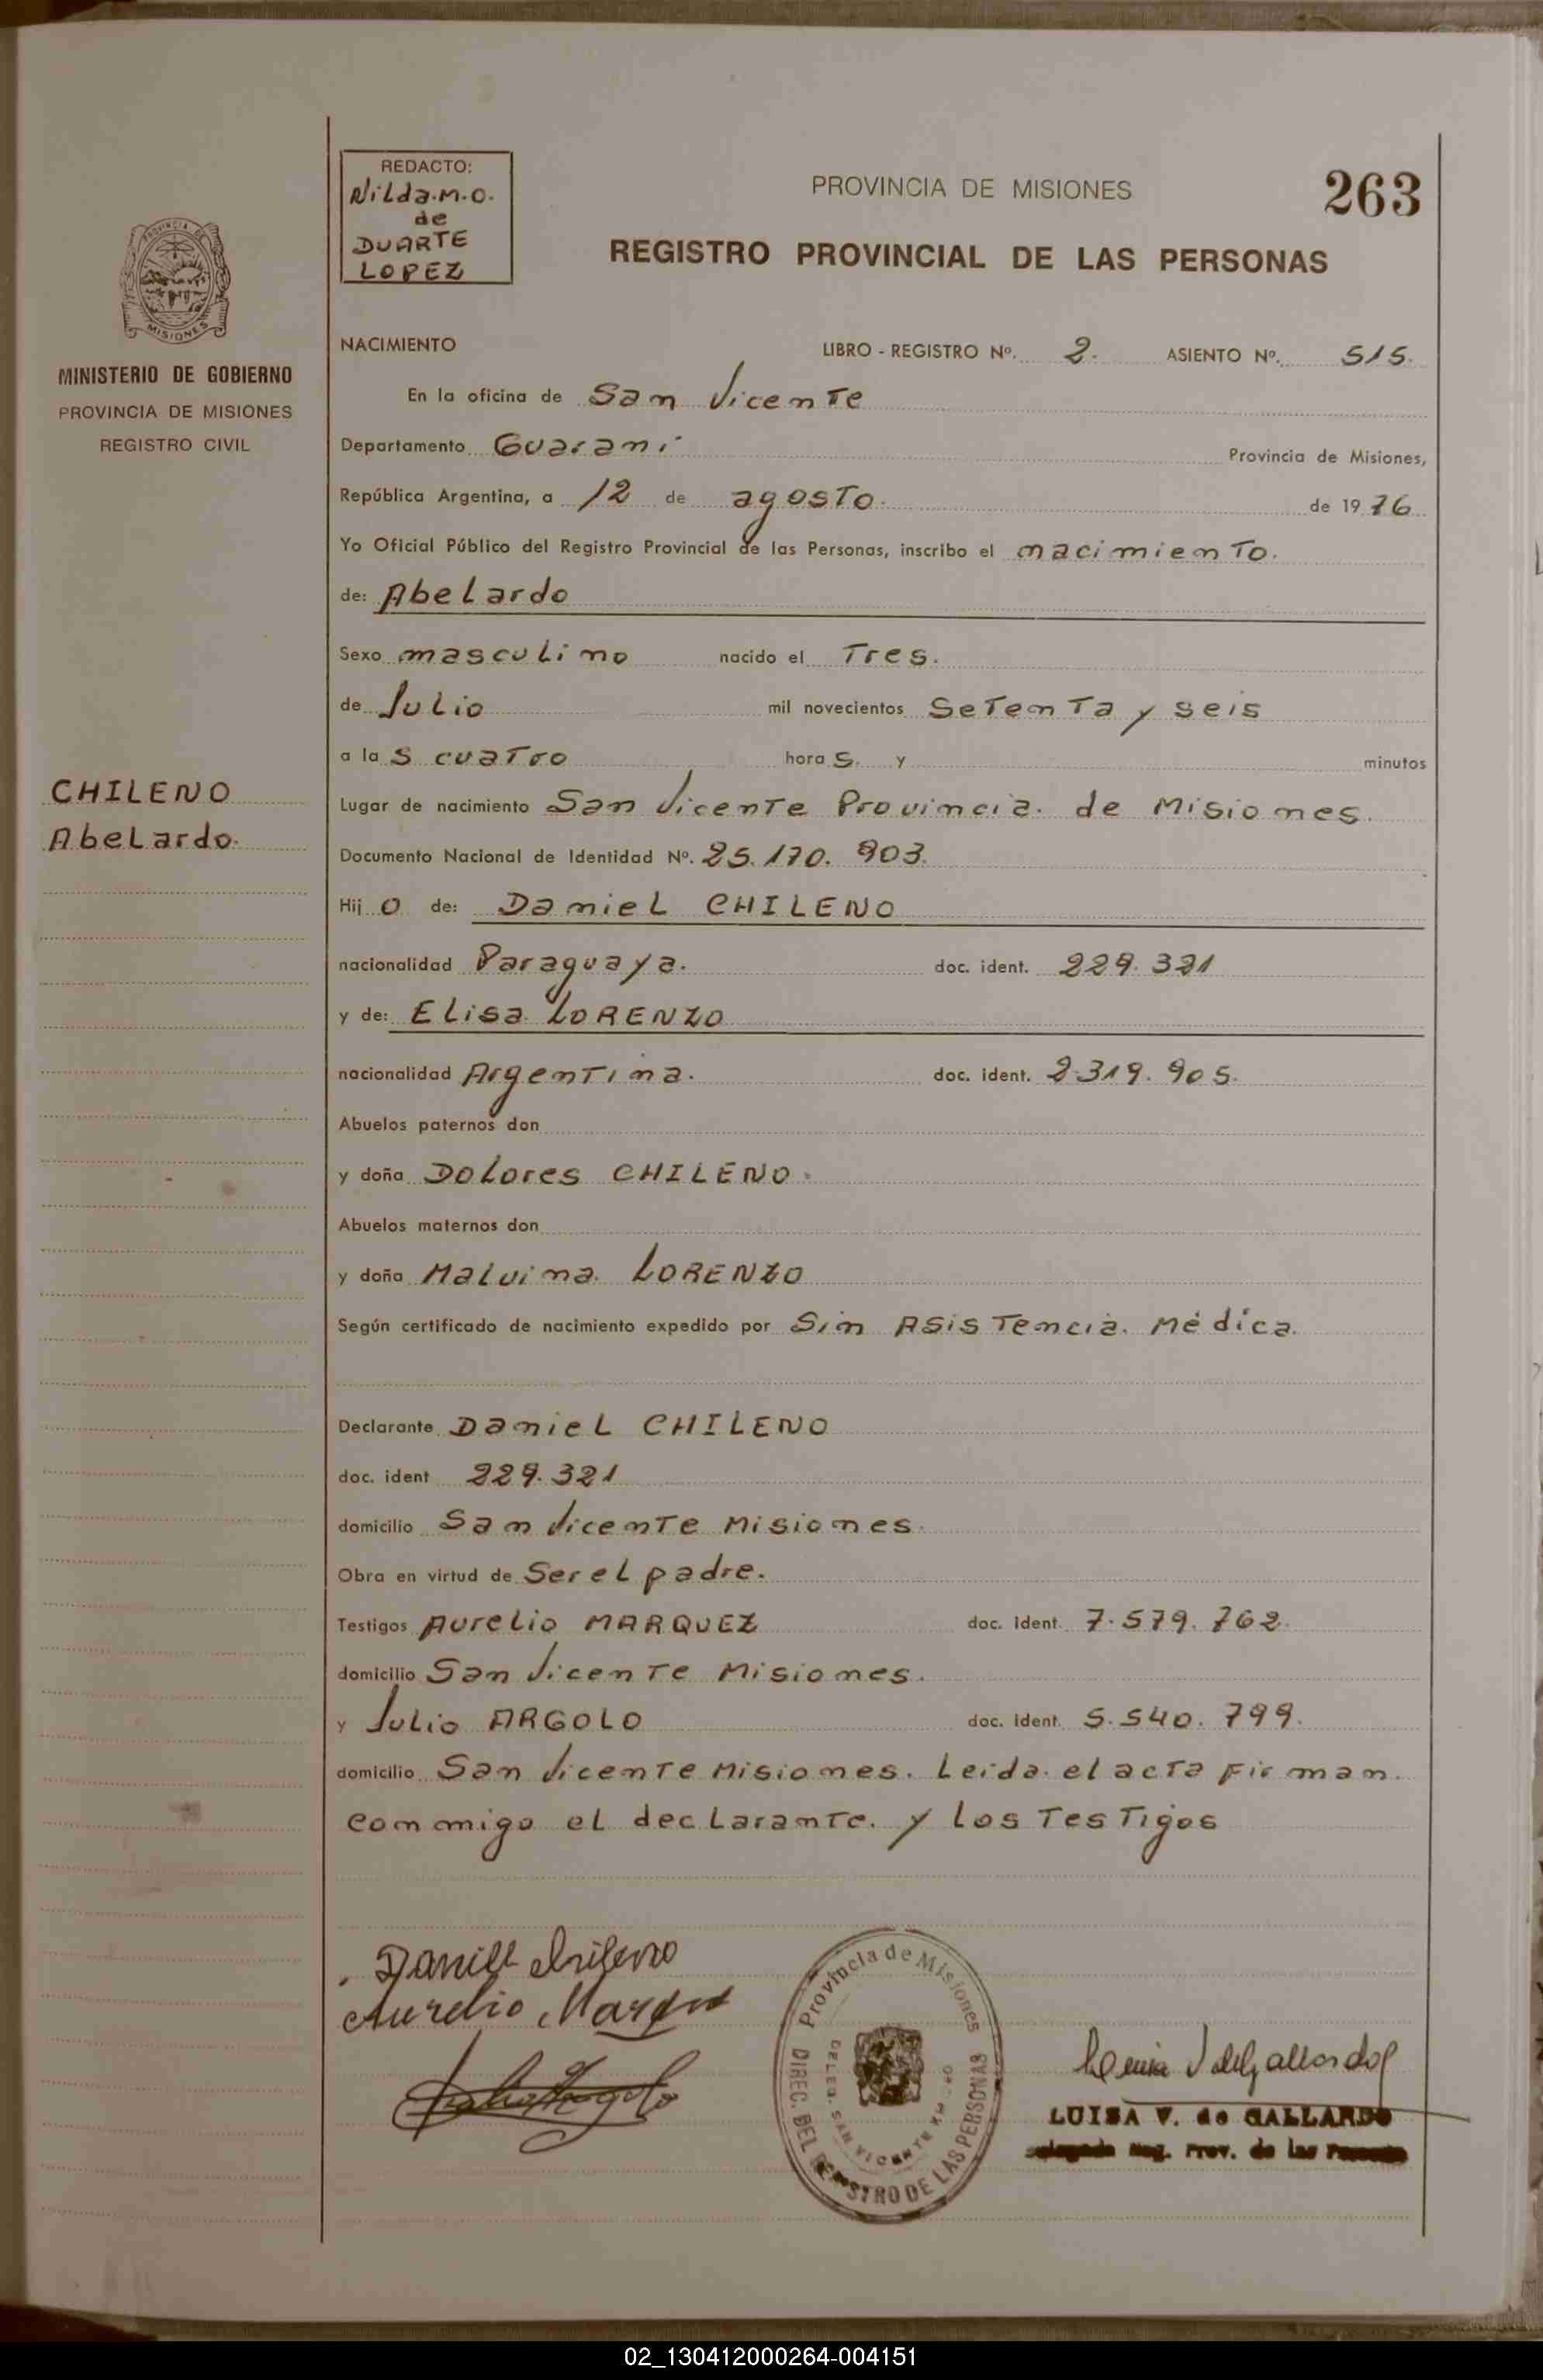 REDACTO:
Nilda.M.O.
de
DUARTE
LOPEZ
PROVINCIA DE MISIONES
263
REGISTRO PROVINCIAL DE LAS PERSONAS
PROVINCIA DE
MISIONES
MINISTERIO DE GOBIERNO
PROVINCIA DE MISIONES
REGISTRO CIVIL
NACIMIENTO LIBRO - REGISTRO Nº. 2. ASIENTO Nº. 515.
En la oficina de San Vicente
Departamento Guaraní Provincia de Misiones,
República Argentina, a 12 de agosto. de 1976
Yo Oficial Público del Registro Provincial de las Personas, inscribo el nacimiento.
de: Abelardo
Sexo masculino nacido el Tres.
de Julio mil novecientos Setenta y seis
a la s cuatro hora s. y minutos
CHILENO
Abelardo.
Lugar de nacimiento San Vicente Provincia. de Misiones.
Documento Nacional de Identidad Nº. 25.170.903.
Hij o de: Daniel CHILENO
nacionalidad Paraguaya. doc. ident. 229.321
y de: Elisa LORENZO
nacionalidad Argentina. doc. ident. 2319.905.
Abuelos paternos don
y doña Dolores CHILENO.
Abuelos maternos don
y doña Malvina. LORENZO
Según certificado de nacimiento expedido por Sin Asistencia. Médica.
Declarante Daniel CHILENO
doc. ident 229.321
domicilio San Vicente Misiones.
Obra en virtud de Ser el padre.
Testigos Aurelio MARQUEZ doc. ident. 7.579.762.
domicilio San Vicente Misiones.
y Julio ARGOLO doc. ident. 5.540.799.
domicilio San Vicente Misiones. Leida el acta Firman.
conmigo el declarante. y los Testigos
Daniel Chileno
Aurelio Marquez
Julio Argolo
Provincia de Misiones
DIREC. DEL REGISTRO DE LAS PERSONAS
DELEG. SAN VICENTE
Luisa V de Gallardo
LUISA V. de GALLARDO
Delegada Reg. Prov. de las Personas
02_130412000264-004151